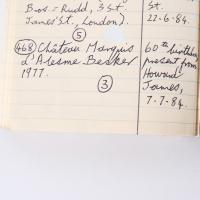 Bros. = Rudd, 3 St
James' St., London).
St.
22-6-84.
5
468 Château Marquis
d'Alesme Becker
1977.
3
60th birthday
present from
Howard
James,
7-7-84.